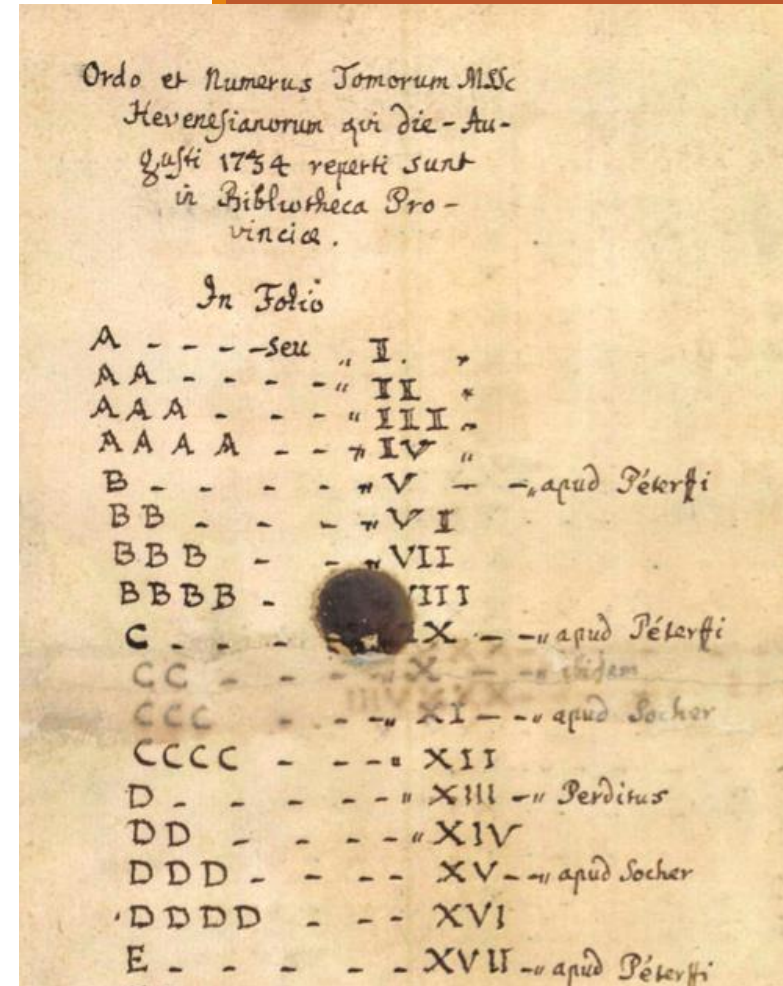 Ordo et Numerus Tomorum MSSc
Hevenesianorum qui die - Au-
gusti 1754 reperti sunt
in Bibliotheca Pro-
vinciæ.
In Folio
A - - - - seu „ I. „
AA - - - - -„ II „
AAA - - - „ III „
AAAA - - „ IV „
B - - - - „ V - -„ apud Péterffi
BB - - - „ VI
BBB - - „ VII
BBBB - VIII
C - - - IX - -„ apud Péterffi
CC - - - - „ X - -„ ibidem
CCC - - -„ XI - -„ apud Socher
CCCC - - - -„ XII
D - - - - - „ XIII -„ Perditus
DD - - - - „ XIV
DDD - - - - XV - -„ apud Socher
DDDD - - - XVI
E - - - - - XVII -„ apud Péterffi